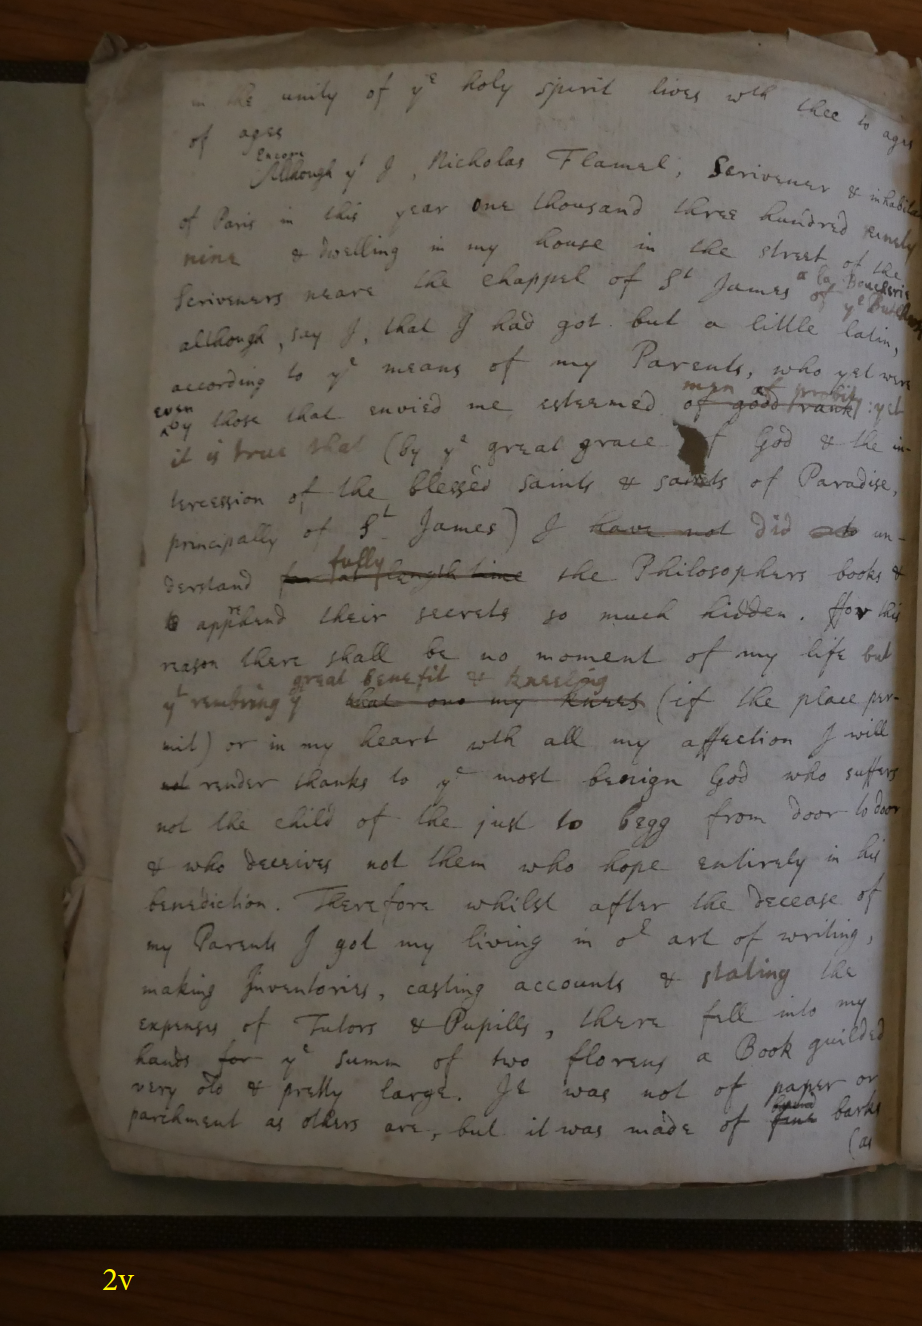 in the unity of yᵉ holy spirit lives wth thee to ages
of ages
Encore
Although yᵗ I, Nicholas Flamel, Scrivener & inhabit
of Paris in this year one thousand three hundred ninety
nine & dwelling in my house in the street of the
Scriveners neare the chappel of Sᵗ James
a la Boucherie
of yᵉ Butchers
although, say I, that I had got but a little latin,
according to yᵉ means of my Parents, who yet were
even
by those that envied me esteemed of good rank : yet
men of probity
it is true that (by yᵉ great grace of God & the in-
tercession of the blessed saints & saints of Paradise,
principally of Sᵗ James) I have not did un-
derstand for at length time the Philosophers books &
fully
apprʰend their secrets so much hidden. ffor this
reason there shall be no moment of my life but
great benefit & kneeling
yᵗ rembring yᵗ that one my knees (if the place per-
mit) or in my heart wth all my affection I will
not render thanks to yᵉ most benign God who suffers
not the child of the just to begg from door to door
& who deceives not them who hope entirely in his
benediction. Therefore whilst after the decease of
my Parents I got my living in oʳ art of writing,
making Inventories, casting accounts & stating the
expenses of Tutors & Pupills, there fell into my
hands for yᵉ summ of two florens a Book guilded
very old & pretty large. It was not of paper or
parchment as others are, but it was made of fine barks
(as
2v